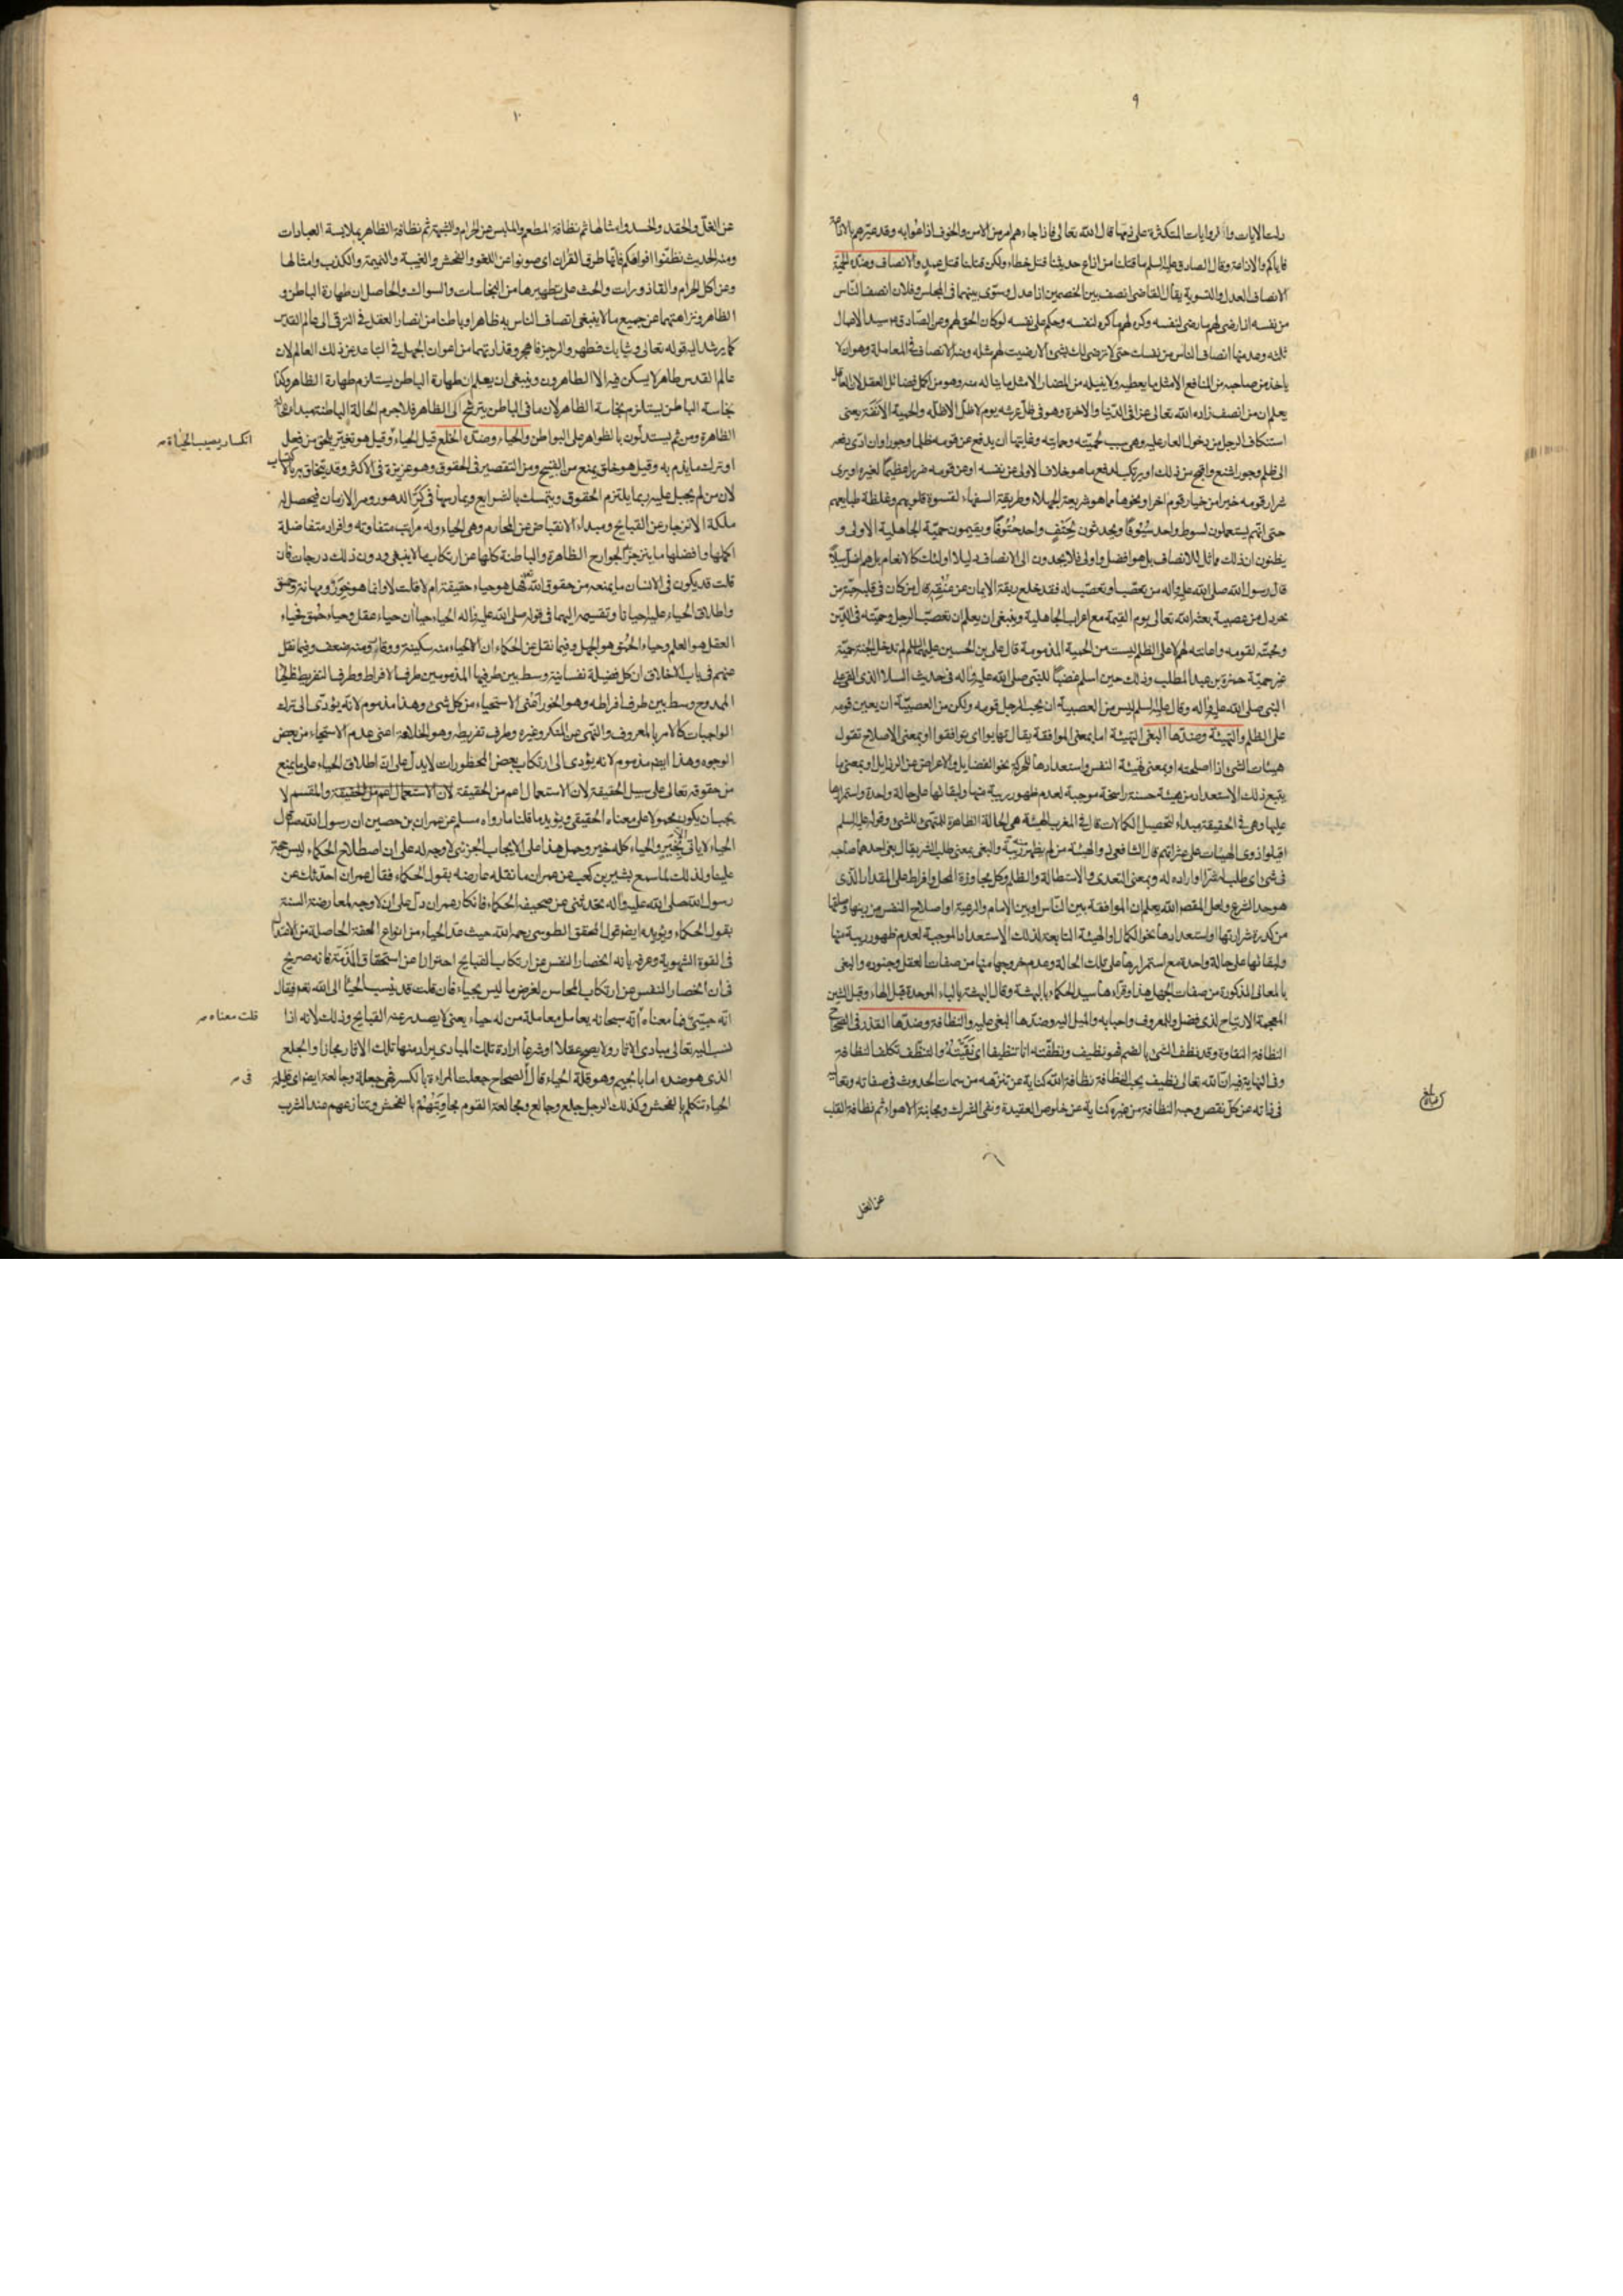 ٩
دلت الايات والروايات المتكثرة على ذمها قال الله تعالى فاذا جاءهم امر من الامن والخوف اذاعوا به وقد عيّرهم بالاذاعة
فاياكم والاذاعة وقال الصادق عليه السلم ما قتلنا من اذاع حديثنا قتل خطاء ولكن قتلنا قتل عمد والانصاف وضدّه الحميّة
الانصاف العدل والتسوية يقال القاضى انصف بين الخصمين اذا عدل وسوّى بينهما فى المجلس وفلان انصف النّاس
من نفسه اذا رضى لهم ما رضى لنفسه وكره لهم ما كره لنفسه وحكم على نفسه لو كان الحق لهم وعن الصّادق ع سيد الاعمال
ثلثه وعد منها انصاف الناس من نفسك حتى لا ترضى لك بشئ الا رضيت لهم مثله وضد الانصاف فى المعاملة وهو ان لا
ياخذ من صاحبه من المنافع الا مثل ما يعطيه ولا ينيله من المضار الا مثل ما يناله منه وهو من اكمل فضائل العقل لان العاقل
يعلم ان من انصف زاده الله تعالى عزا فى الدّنيا والاخرة وهو فى ظلّ عرشه يوم لا ظلّ الا ظلّه والحمية الانفة يعنى
استنكاف الرجل من دخول العار عليه وهى سبب لحميّته وحمايته وغايتها ان يدفع عن قومه ظلما وجورا وان ادّى دفعه
الى ظلم وجور اشنع واقبح من ذلك او يرتكب لدفع ما هو خلاف الاولى عن نفسه او عن قومه ضررا عظيمًا لغيره او يرى
شرار قومه خيرا من خيار قوم اخر او نحوها مما هو شريعة الجهلاء وطريقة السفهاء لقسوة قلوبهم وغلظة طبايعهم
حتى انّهم يستعملون لسوط واحد سيُوفًا ويحدثون بحَتْفٍ واحد حُتُوفًا ويقيمون حميّة الجاهلية الاولى و
يظنون ان ذلك مماثل للانصاف بل هو افضل واولى فلا يجدون الى الانصاف سبيلا اولئك كالانعام بل هم اضل سبيلا
قال رسول الله صلى الله عليه واله من تعصّب او تعصّب له فقد خلع ربقة الايمان عن عنُقِه قال من كان فى قلبه حبّة من
خردل من عصبية بعثه الله تعالى يوم القيمة مع اعراب الجاهلية وينبغى ان يعلم ان تعصّب الرجل وحميّته فى الدّين
ومحبّته لقومه واعانته لهم لا على الظلم ليست من الحمية المذمومة قال على بن الحسين عليهما السلم لم تدخل الجنة حميّة
غير حميّة حمزة بن عبد المطلب وذلك حين اسلم غضبًا للنبى صلى الله عليه واله فى حديث السلا الذى القى على
النبى صلى الله عليه واله وقال عليه السلم ليس من العصبية ان يحب الرجل قومه ولكن من العصبيّة ان يعين قومه
على الظلم والتهيئة وضدّها البغى التهيئة اما بمعنى الموافقة يقال تهايوا اى توافقوا او بمعنى الاصلاح تقول
هيئات الشئ اذا اصلحته او بمعنى تهيئة النفس واستعدادها للحركة نحو الفضايل والاعراض عن الرذايل او بمعنى ما
يتبع ذلك الاستعداد من هيئة حسنة راسخة موجبة لعدم ظهور ريبة منها ولبقائها على حالة واحدة واستمرارها
عليها وهى فى الحقيقة مبداء لتحصيل الكمالات قال فى المغرب الهيئة هى الحالة الظاهرة للمتهيّئ للشئ وقوله عليه السلم
اقيلوا ذوى الهيئات عثراتهم قال الشافعى ذو الهيئة من لم يظهر منه ريبة والبغى بمعنى طلب الشر يقال بغى احدهما صاحبه
فى شئ اى طلب له شرّا او اراده له وبمعنى التعدى والاستطالة والظلم وكل مجاوزة المحل وافراط على المقدار الّذى
هو حد الشرع ولعل المقصد الله يعلم ان الموافقة بين النّاس او بين الامام والرعية او اصلاح النفس من رينها وصلتها
من كدرة شرارتها او استعدادها نحو الكمال او الهيئة التابعة لذلك الاستعداد الموجبة لعدم ظهور ريبة منها
ولبقائها على حالة واحدة مع استمرارها على تلك الحالة وعدم خروجها منها من صفات العقل وجنوده والبغى
بالمعانى المذكورة من صفات الجهل هذا وقراءها سيد الحكماء بالبهشة وقال البهشة بالباء الموحدة قبل الهاء وقبل الشين
المعجمة الارتياح لذى فضل وللمعروف واحبابه والميل اليه وضدّها البغى عليه والنظافة وضدّها القذر فى الصحاح
النظافة النقاوة وقد نظف الشئ بالضم فهو نظيف ونظفّته انا تنظيفا اى نَقَّيْتُهُ والتنظّف تكلف النظافة
وفى النهاية فيه ان الله تعالى نظيف يحب النظافة نظافة الله كناية عن تنزهه من سمات الحدوث فى صفاته وتعاليه
فى ذاته عن كلّ نقص وحبه النظافة من غيره كناية عن خلوص العقيدة ونفى الشرك ومجانبة الاهواء ثم نظافة القلب
عن الغل
١٠
عن الغلّ والحقد والحسد وامثالها ثم نظافة المطعم والملبس عن الحرام والشبهة ثم نظافة الظاهر بملابسة العبادات
ومنه الحديث نظفّوا افواهكم فانّها طرق القران اى صونوا عن اللغو والفحش والغيبة والنميمة والكذب وامثالها
وعن اكل الحرام والقاذورات والحث على تطهيرها من النجاسات والسواك والحاصل ان طهارة الباطن و
الظاهر ونزاهتهما عن جميع ما لا ينبغى اتصاف الناس به ظاهرا وباطنا من انصار العقل فى الترقى الى عالم القدس
كما يرشد اليه قوله تعالى وثيابك فطهر والرجز فاهجر وقذارتهما من اعوان الجهل فى التباعد عن ذلك العالم لان
عالم القدس طاهر لا يسكن فيه الا الطاهرون وينبغى ان يعلم ان طهارة الباطن يستلزم طهارة الظاهر وكذا
نجاسة الباطن يستلزم نجاسة الظاهر لان ما فى الباطن يترشح الى الظاهر فلا جرم الحالة الباطنة مبداء للحالة
الظاهرة ومن ثم يستدلّون بالظواهر على البواطن والحياء وضدّه الخلع قيل الحياء وقيل هو تغيّر يلحق من فعل
انكسار يصيب الحياة
او ترك ما يذم به وقيل هو خلق يمنع من القبيح ومن التقصير فى الحقوق وهو غريزة فى الاكثر وقد يتخلق به بالاكتساب
لان من لم يجبل عليه ربما يلتزم الحقوق ويتمسك بالشرايع ويمارسها فى كرّ الدهور ومر الازمان فيحصل له
ملكة الانزجار عن القبايح ومبداء الانقباض عن المحارم وهى الحياء وله مراتب متفاوتة وافراد متفاضلة
اكملها وافضلها ما ينزجر به الجوارح الظاهرة والباطنة كلها عن ارتكاب ما لا ينبغى ودون ذلك درجات فان
قلت قد يكون فى الانسان ما يمنعه من حقوق الله فهل هو حياء حقيقة ام لا قلت لا وانما هو خَوَرٌ ومهانة وحمق
واطلاق الحياء عليه احيانا وتقسيمه اليهما فى قوله صلى الله عليه واله الحياء حياآن حياء عقل وحياء حمق فحياء
العقل هو العلم وحياء الحُمق هو الجهل وفيما نقل عن الحكماء ان الاحياء منه سكينة ووقار ومنه ضعف وفيما نقل
عنهم فى باب الاخلاق ان كل فضيلة نفسانية وسط بين طرفيها المذمومين طرف الافراط وطرف التفريط فالحياء
الممدوح وسط بين طرف افراطه وهو الخور اَعْنى الاستحياء من كل شئ وهذا مذموم لانّه يؤدّى الى ترك
الواجبات كالامر بالمعروف والنهى عن المنكر وغيره وطرف تفريطه وهو الخلاعة اعنى عدم الاستحياء من بعض
الوجوه وهذا ايضا مذموم لانه يؤدى الى ارتكاب بعض المحظورات لا يدل على انّ اطلاق الحياء على ما يمنع
من حقوقه تعالى على سبيل الحقيقة لان الاستعمال اعم من الحقيقة لان الاستعمال اعم من الحقيقة والمقسم لا
يجب ان يكون محمولا على معناه الحقيقى ويؤيد ما قلنا ما رواه مسلم عن عمران بن حصين ان رسول الله ص قال
الحياء لا ياتى الا بخَيْرٍ والحياء كله خير وحمل هذا على الايجاب الجزئى لا وجه له على ان اصطلاح الحكماء ليس حجة
علينا ولذلك لما سمع بشير بن كعب عن عمران ما نقله عارضه بقول الحكماء فقال عمران احدّثك عن
رسول الله صلى الله عليه واله تحدثنى عن صحيفة الحكماء فانكار عمران دلّ على ان لا وجه لمعارضة السنة
بقول الحكماء ويؤيده ايضا قول المحقق الطوسى رحمه الله حيث عدّ الحياء من انواع العفة الحاصلة من الاعتدال
فى القوة الشهوية وعرفه بانه انحصار النفس عن ارتكاب القبايح احترازا عن استحقاق المَذَمَّة فانه صريح
فى ان انحصار النفس عن ارتكاب المحاسن لغرض ما ليس بحياء فان قلت قد ينسب الحياء الى الله نعم فيقال
انّه حيىّ فما معناه انّه سبحانه يعامل معاملة من له حياء يعنى لا يصدر عنه القبايح وذلك لانه اذا
قلت معناه
نسب اليه تعالى مبادى الاثار ولا يصح عقلا او شرعًا ارادة تلك المبادى يراد منها تلك الاثار مجازا والجلع
الذى هو ضده اما بالجيم وهو قلة الحياء قال الصحاح جعلت المراءة بالكسر فهى جعلة وجالعة ايضا اى قليلة
فى
الحياء تتكلم بالفحش وكذلك الرجل جلع وجالع ومجالعة القوم مجاوَبَتُهُمْ بالفحش وتنازعهم عند الشرب